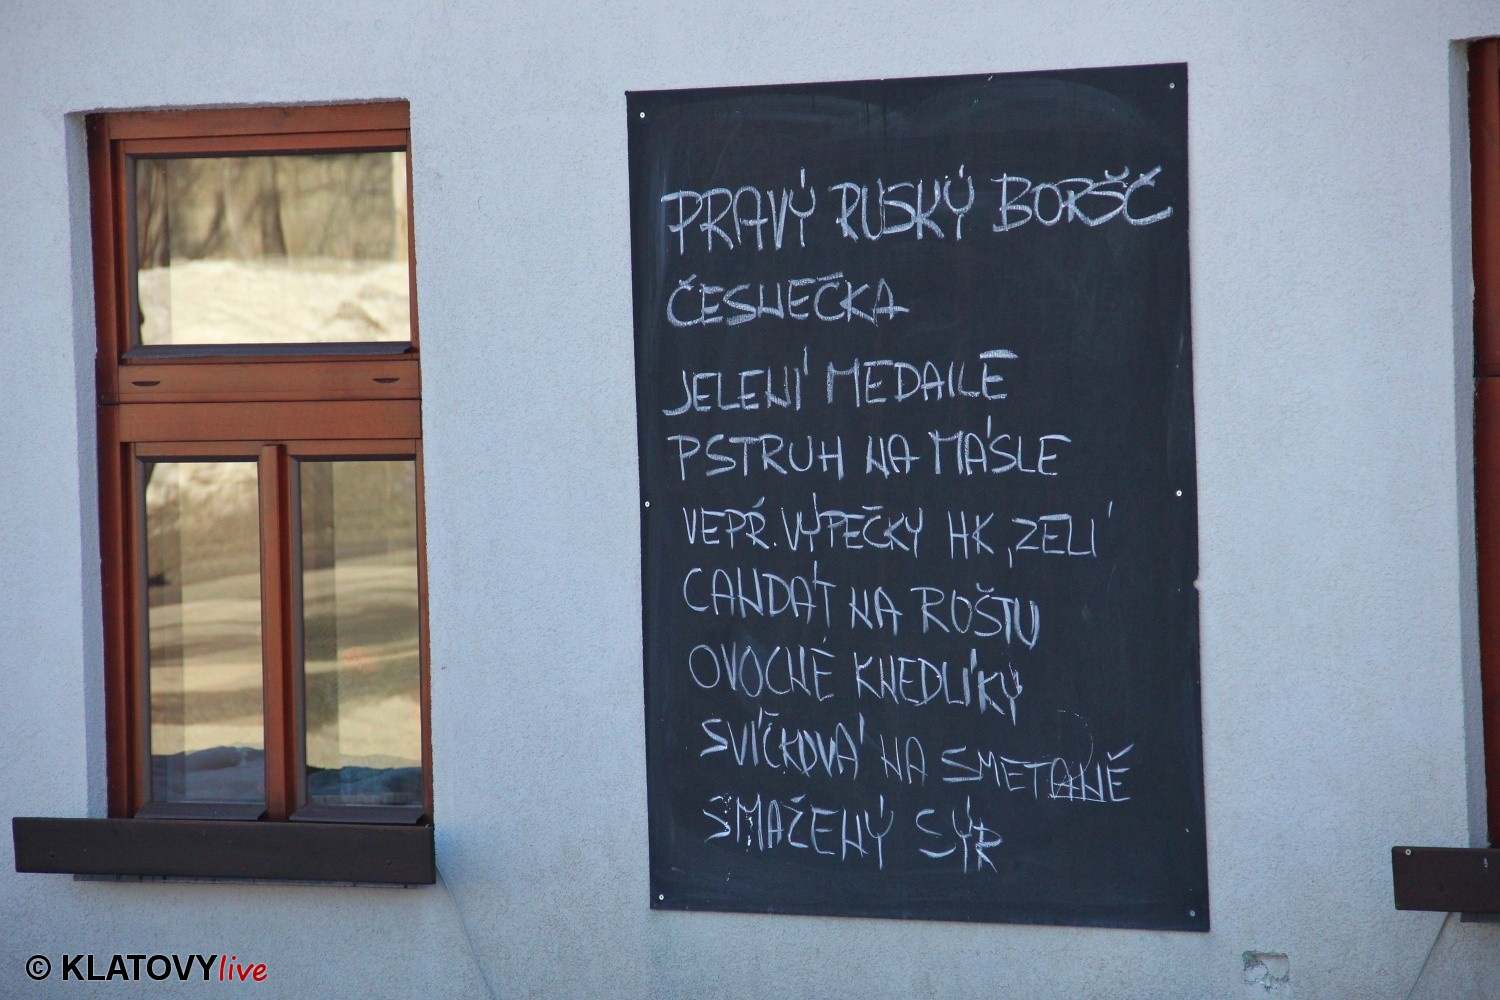 PRAVÝ RUSKÝ BORŠČ
ČESNEČKA
JELENÍ MEDAILÉ
PSTRUH NA MÁSLE
VEPŘ. VÝPEČKY HK, ZELÍ
CANDÁT NA ROŠTU
OVOCNÉ KNEDLÍKY
SVÍČKOVÁ NA SMETANĚ
SMAŽENÝ SÝR
© KLATOVYlive